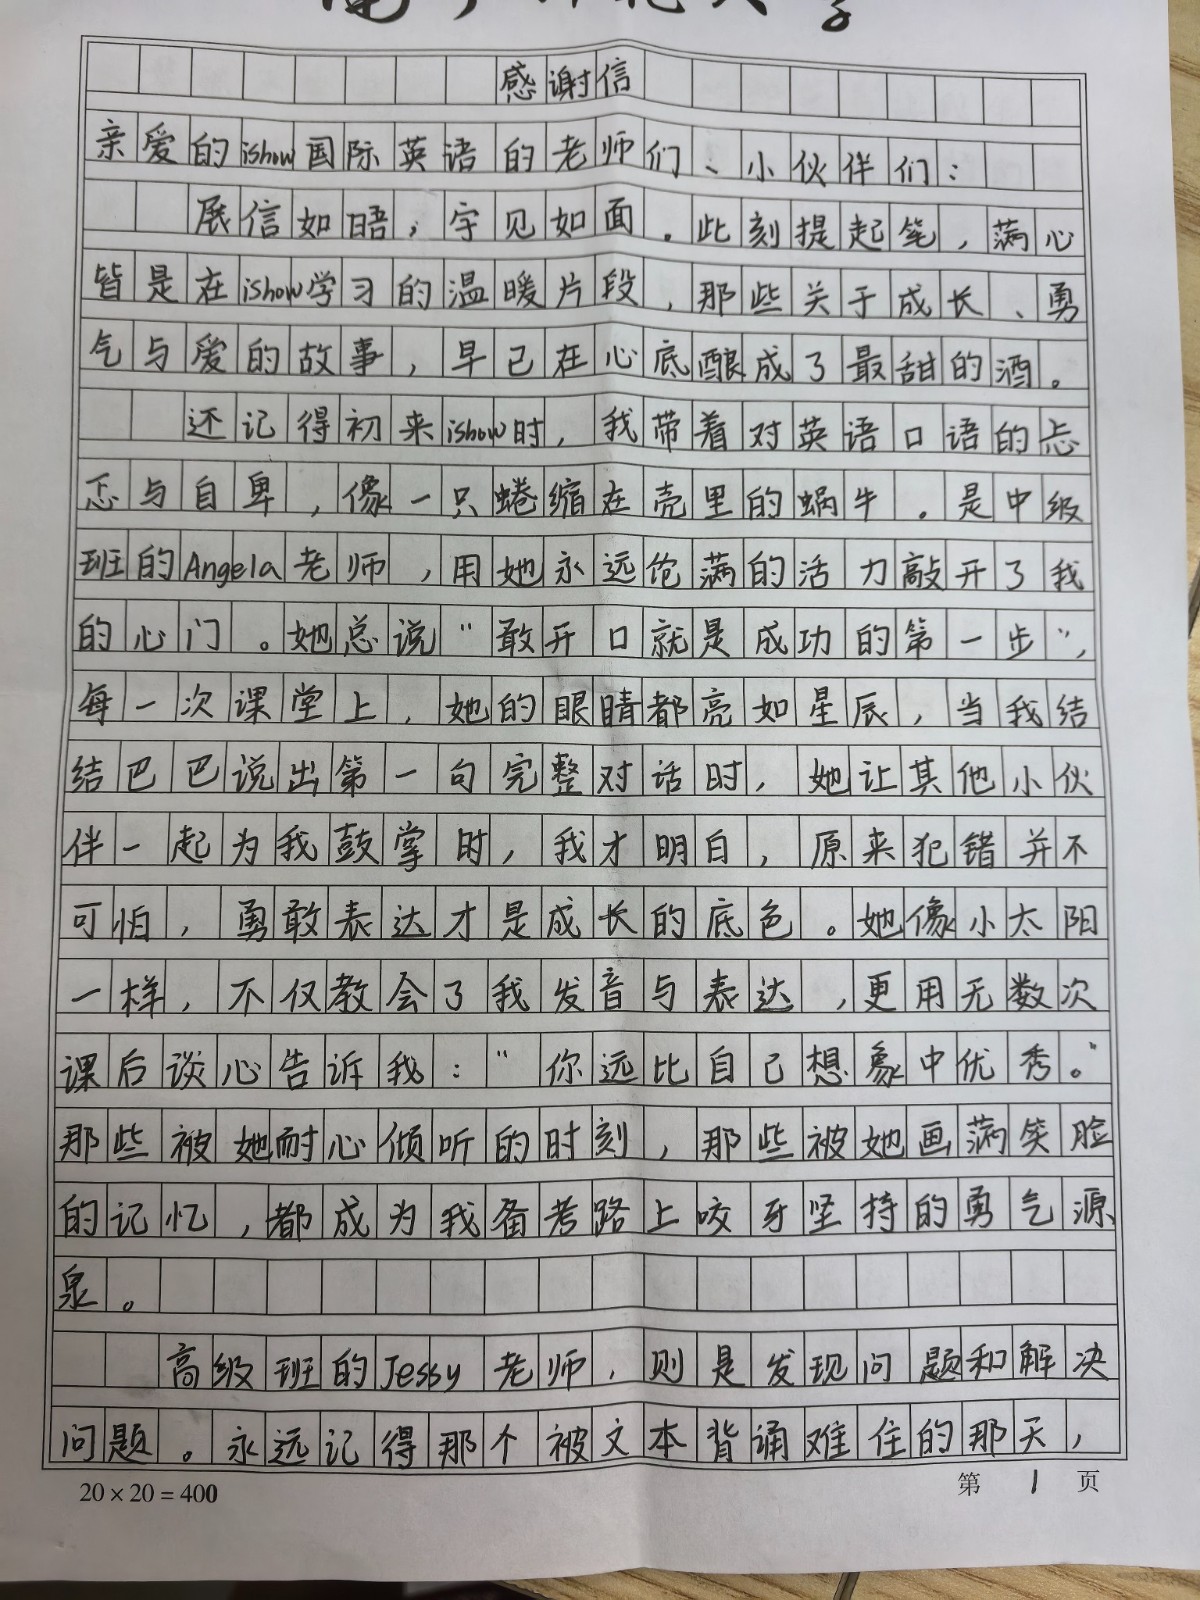 感谢信
亲爱的ishow国际英语的老师们、小伙伴们：
展信如晤，字见如面。此刻提起笔，满心
皆是在ishow学习的温暖片段，那些关于成长、勇
气与爱的故事，早已在心底酿成了最甜的酒。
还记得初来ishow时，我带着对英语口语的忐
忑与自卑，像一只蜷缩在壳里的蜗牛。是中级
班的Angela老师，用她永远饱满的活力敲开了我
的心门。她总说“敢开口就是成功的第一步”，
每一次课堂上，她的眼睛都亮如星辰，当我结
结巴巴说出第一句完整对话时，她让其他小伙
伴一起为我鼓掌时，我才明白，原来犯错并不
可怕，勇敢表达才是成长的底色。她像小太阳
一样，不仅教会了我发音与表达，更用无数次
课后谈心告诉我：“你远比自己想象中优秀。”
那些被她耐心倾听的时刻，那些被她画满笑脸
的记忆，都成为我备考路上咬牙坚持的勇气源
泉。
高级班的Jessy老师，则是发现问题和解决
问题。永远记得那个被文本背诵难住的那天，
20×20=400
第1页